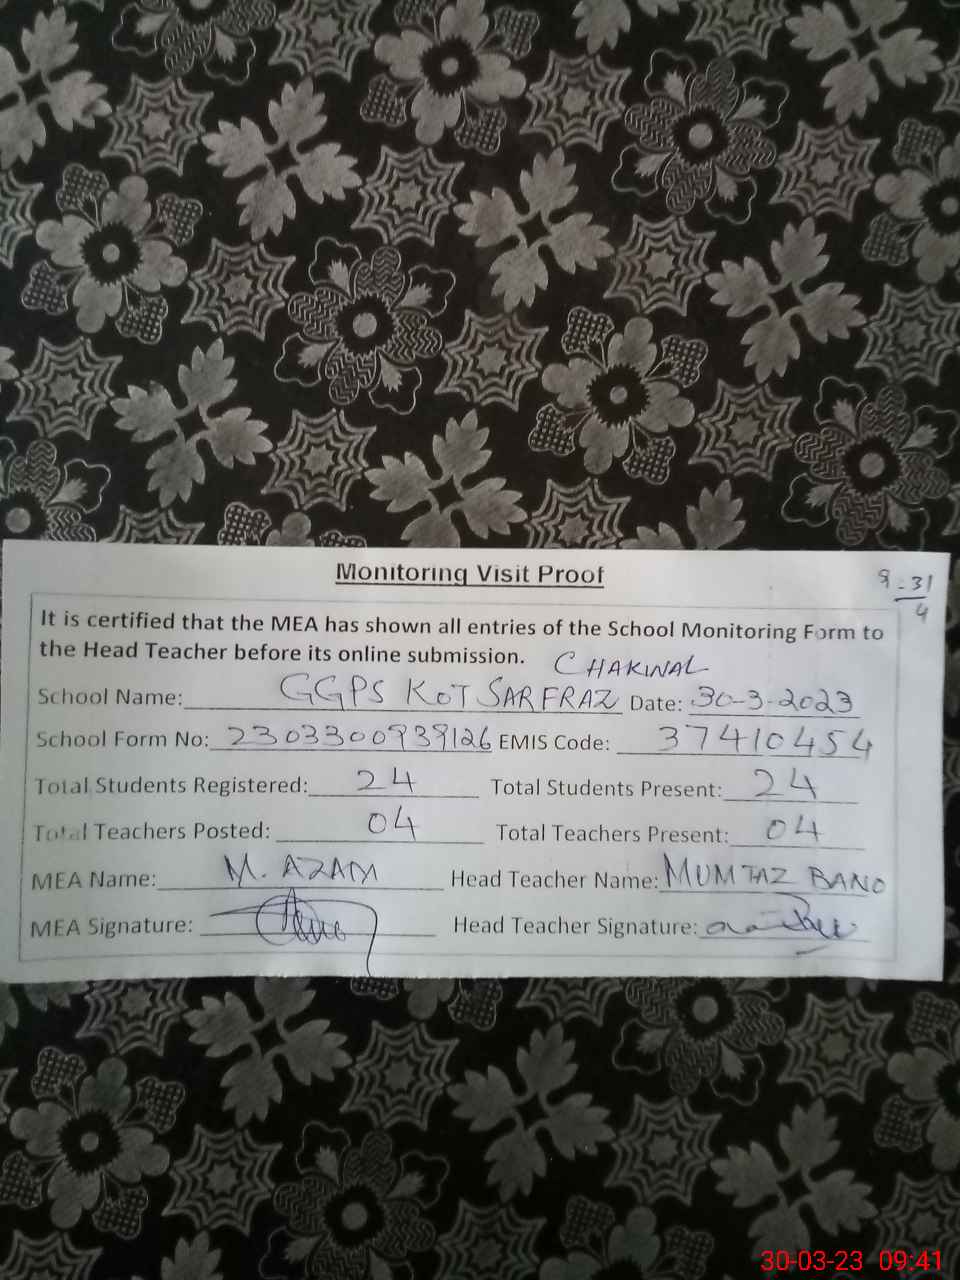 Monitoring Visit Proof
9-31
4
It is certified that the MEA has shown all entries of the School Monitoring Form to
the Head Teacher before its online submission.
CHAKWAL
School Name: GGPS KOT SARFRAZ Date: 30-3-2023
School Form No: 2303300939126 EMIS Code: 37410454
Total Students Registered: 24 Total Students Present: 24
Total Teachers Posted: 04 Total Teachers Present: 04
MEA Name: M. AZAM Head Teacher Name: MUMTAZ BANO
MEA Signature: Head Teacher Signature:
30-03-23 09:41